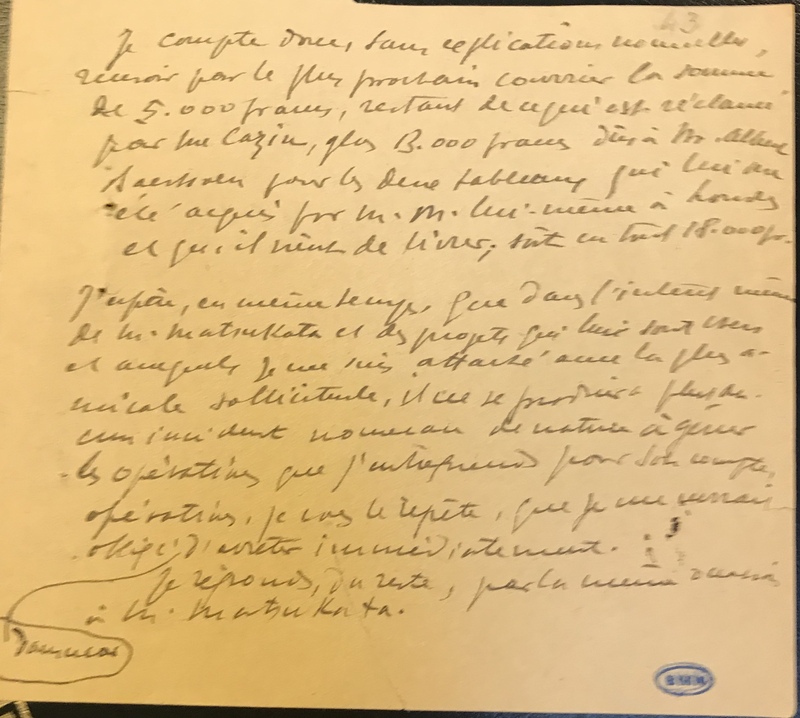 43
Je compte donc, sans explications nouvelles,
recevoir par le plus prochain courrier la somme
de 5.000 francs, restant de ce qui est réclamé
par Me Cazin, plus 13.000 francs dûs à Mr. Albert
pour les deux tableaux qui lui ont
été acquis par M. M. lui-même à Londres
et qu'il vient de livrer; soit en tout 18.000 fr.
J'espère, en même temps, que dans l'intérêt même
de M. Matsukata et des projets qui lui sont chers
et auxquels je me suis attaché avec la plus a-
micale sollicitude, il ne se produira plus au-
cun incident nouveau de nature à gêner
les opérations que j'entreprends pour son compte,
opérations, je vous le répète, que je me verrais
obligé d'arrêter immédiatement.
Je réponds, du reste, par la même occasion
à M. Matsukata.